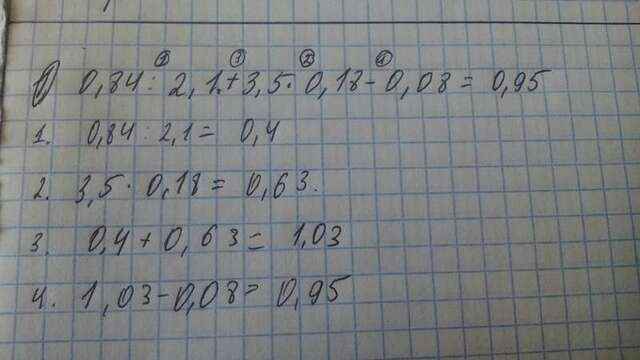 ① ③ ② ④
1) 0,84 : 2,1 + 3,5 · 0,18 - 0,08 = 0,95
1. 0,84 : 2,1 = 0,4
2. 3,5 · 0,18 = 0,63.
3. 0,4 + 0,63 = 1,03
4. 1,03 - 0,08 = 0,95